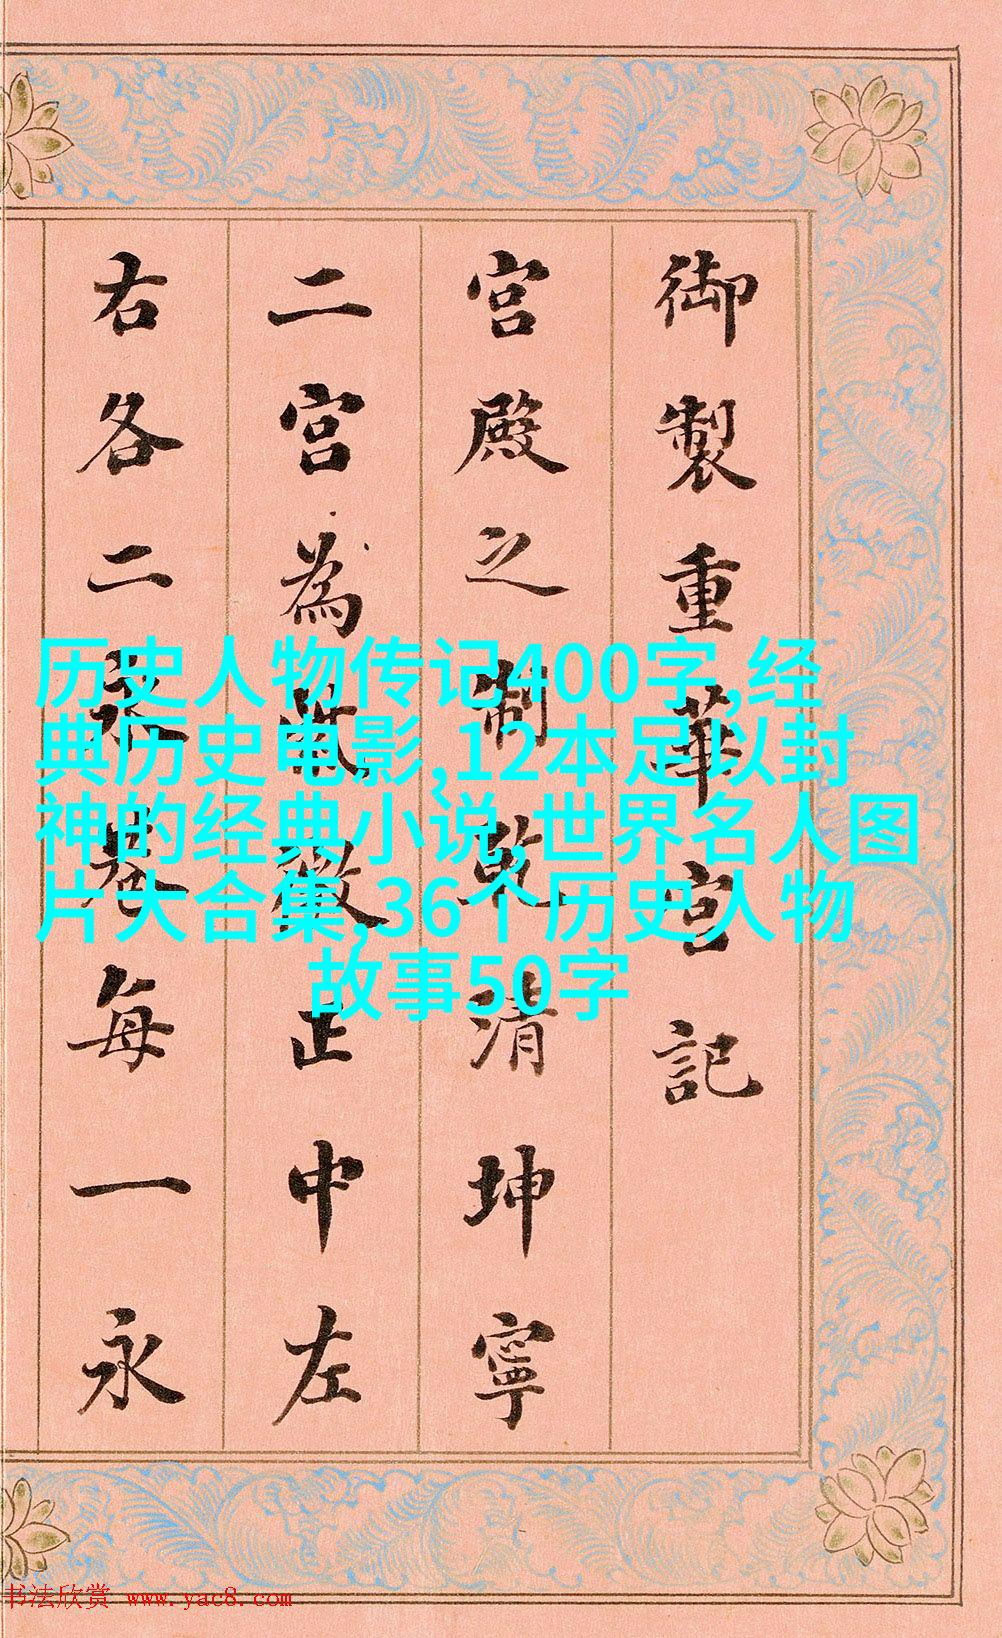 御製重華宮記
宮殿之制乾清坤寧
二宮為紫微正中左
右各二永巷每一永
历史人物传记400字,经
典历史电影,12本足以封
神的经典小说,世界名人图
片大合集,36个历史人物
故事50字
书法欣赏 www.yac8.com